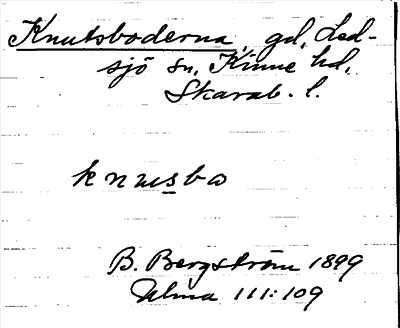 Knutsboderna, gd, Led-
sjö sn, Kinne hd,
Skarab. l.
knusbo
B. Bergström 1899
Ulma 111:109